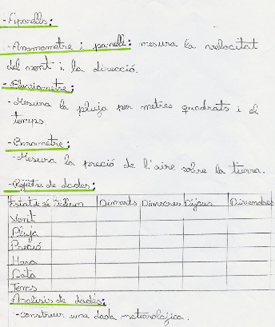 - Anamometre i panell: mesura la velocitat
del vent i la direcció.
- Pluviometre:
- Mesura la pluja per metres quadrats i el
temps.
- Barometre:
- Mesura la preció de l'aire sobre la tierra.
- Registre de dades:
Dimarts Dimecres Dijous Divendres
Vent
Pluja
Preció
Hora
Data
Temps
Analisis de dades:
- construir una dada meteorològica.